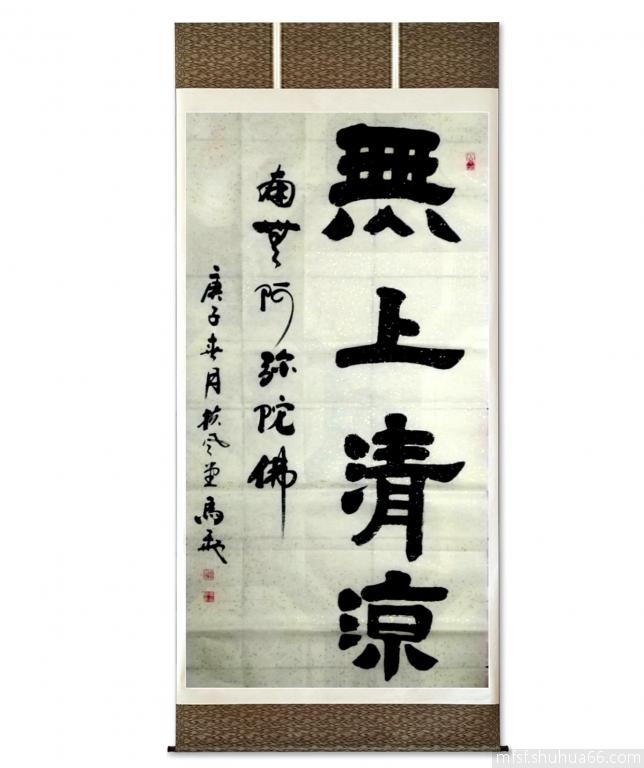 無上清涼
南無阿弥陀佛
庚子春月扶风堂馬
mfsf.shuhua66.com